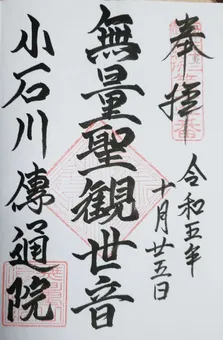 奉拝
令和五年
十月廿五日
無量聖観世音
小石川傳通院